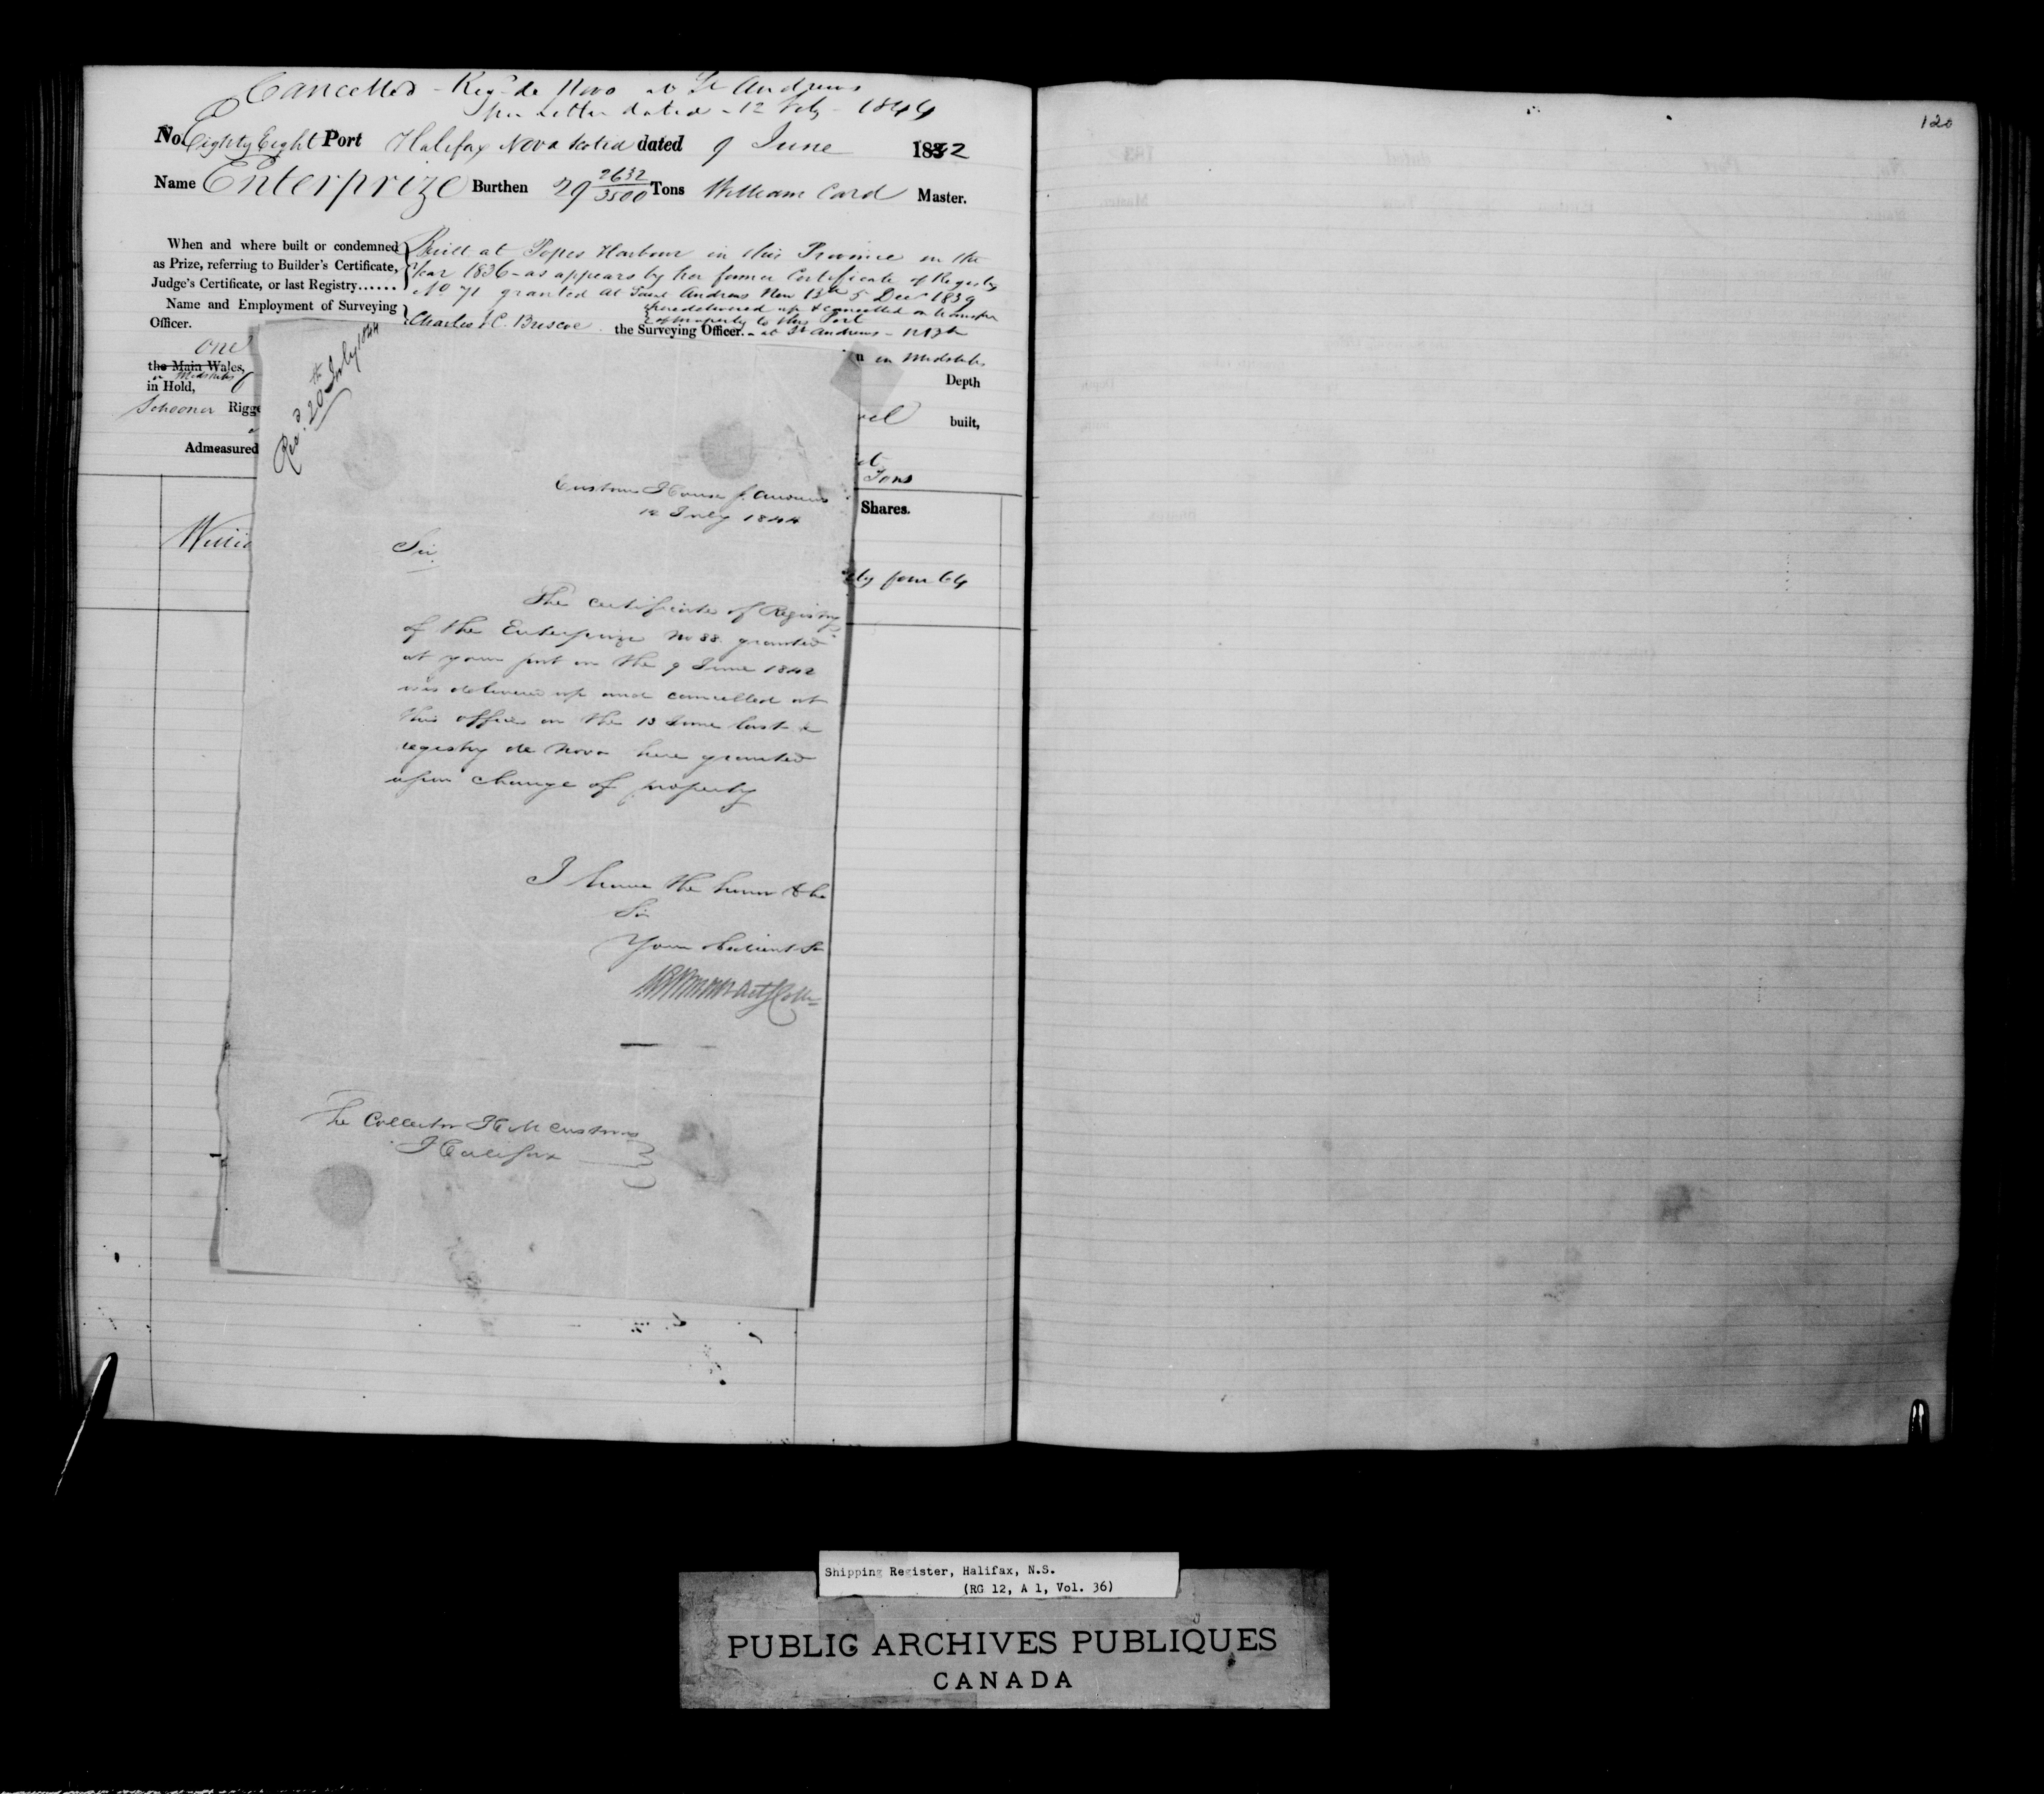 Cancelled - Reg. de Novo at St Andrews
per Letter dated - 12 July - 1844
No. Eighty Eight Port Halifax Nova Scotia dated 9 June 1842
Name Enterprize Burthen 29 2632/3500 Tons William Card Master.
When and where built or condemned
as Prize, referring to Builder's Certificate,
Judge's Certificate, or last Registry......
Built at Popes Harbour in this Province in the
Year 1836 - as appears by her former Certificate of Registry
No 71 granted at Saint Andrews New Bk 5 Decr 1839
here delivered up & cancelled on transfer
of property to this Port
Name and Employment of Surveying
Officer.
Charles C. Briscoe the Surveying Officer. - at St Andrews - N Bk
one
the Main Wales,
in Midships
in Hold,
in Midships
Depth
Schooner Rigge
built,
Admeasured
Tons
Shares.
Willia
ty four 64
Recd. 20th July 1844
Custom House St. Andrews
12 July 1844
Sir
The certificate of Registry
of the Enterprize No 88. granted
at your port on the 9 June 1842
was delivered up and cancelled at
this office on the 13 June last &
registry de Novo here granted
upon change of property
I have the honor to be
Sir
Your obedient Sr
The Collector H M Customs
Halifax
120
Shipping Register, Halifax, N.S.
(RG 12, A 1, Vol. 36)
PUBLIC ARCHIVES PUBLIQUES
CANADA